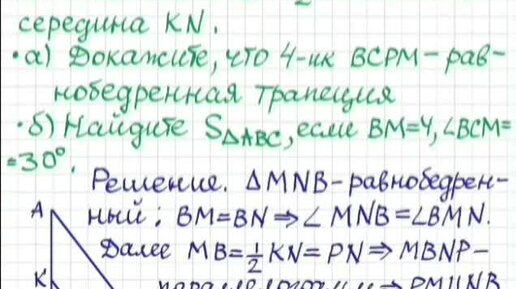 середина KN.
• а) Докажите, что 4-ик BCPM – рав-
нобедренная трапеция
• б) Найдите S△ABC, если BM=4, ∠BCM=
=30°.
Решение. △MNB – равнобедрен-
ный; BM=BN ⇒ ∠ MNB = ∠BMN.
A
Далее MB = ½ KN = PN ⇒ MBNP –
K
⇒ PM || NB